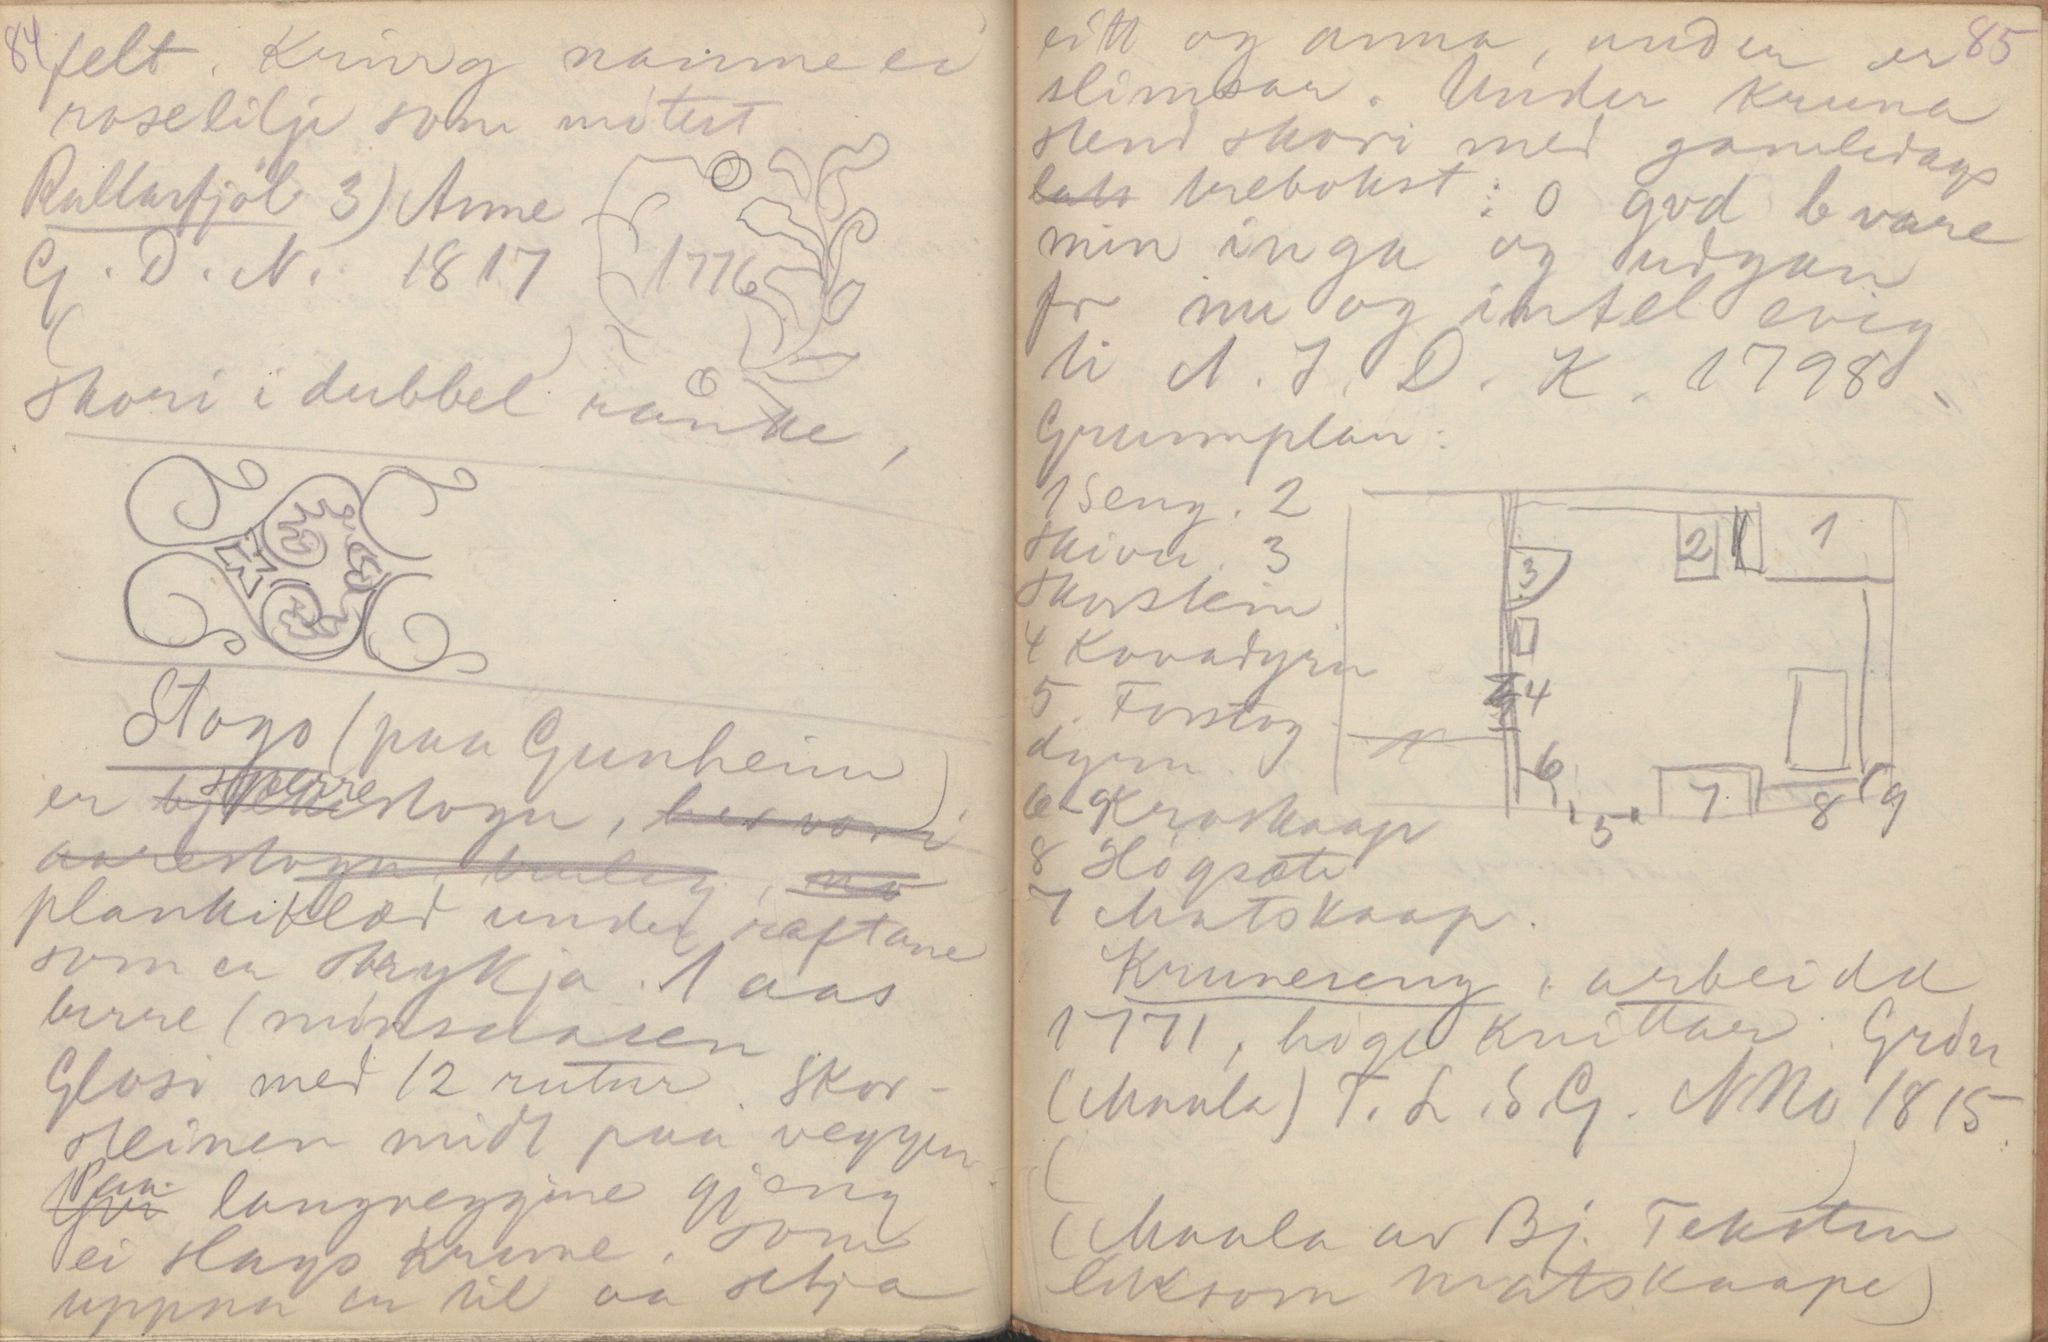 84
felt. Kring namne ei
roselilje som måtest
Rullarfjöl 3) Anne
G. D. N. 1817
1776
( )
skori i dubbel ranke,
Stogo (paa Gunheim)
er sperrestogu, hev vori
aarestogu,
plankiklæd under raftane
som er strykja. 1 aas
berre (mönsaasen
Glasi med 12 rutur. Skor-
steinen midt paa veggjen
Paa langveggjine gjeng
ei slags krune, som
uppaa er til aa setja
85
eitt og anna, under er
slimsar. Under kruna
stend skori med gamledags
trebokst: O gud bvare
min inga og udgan
fr nu og intel evig
ti N. J. D. K. 1798.
Grunnplan:
1 Seng. 2
Skivu. 3
Skorstein
4 Kovadyrn
5. Forstog-
dyrn
6-9 Kroskaap
8 Högsæte
7 Matskaap.
1
2
3
4
6
5
7
8
9
Kruneseng, arbeidd
1771, höge knittar. Grön
(Maala) T. L. S. G. NNo 1815.
( )
(Maala av Bj. Teksten
liksom matskaape)